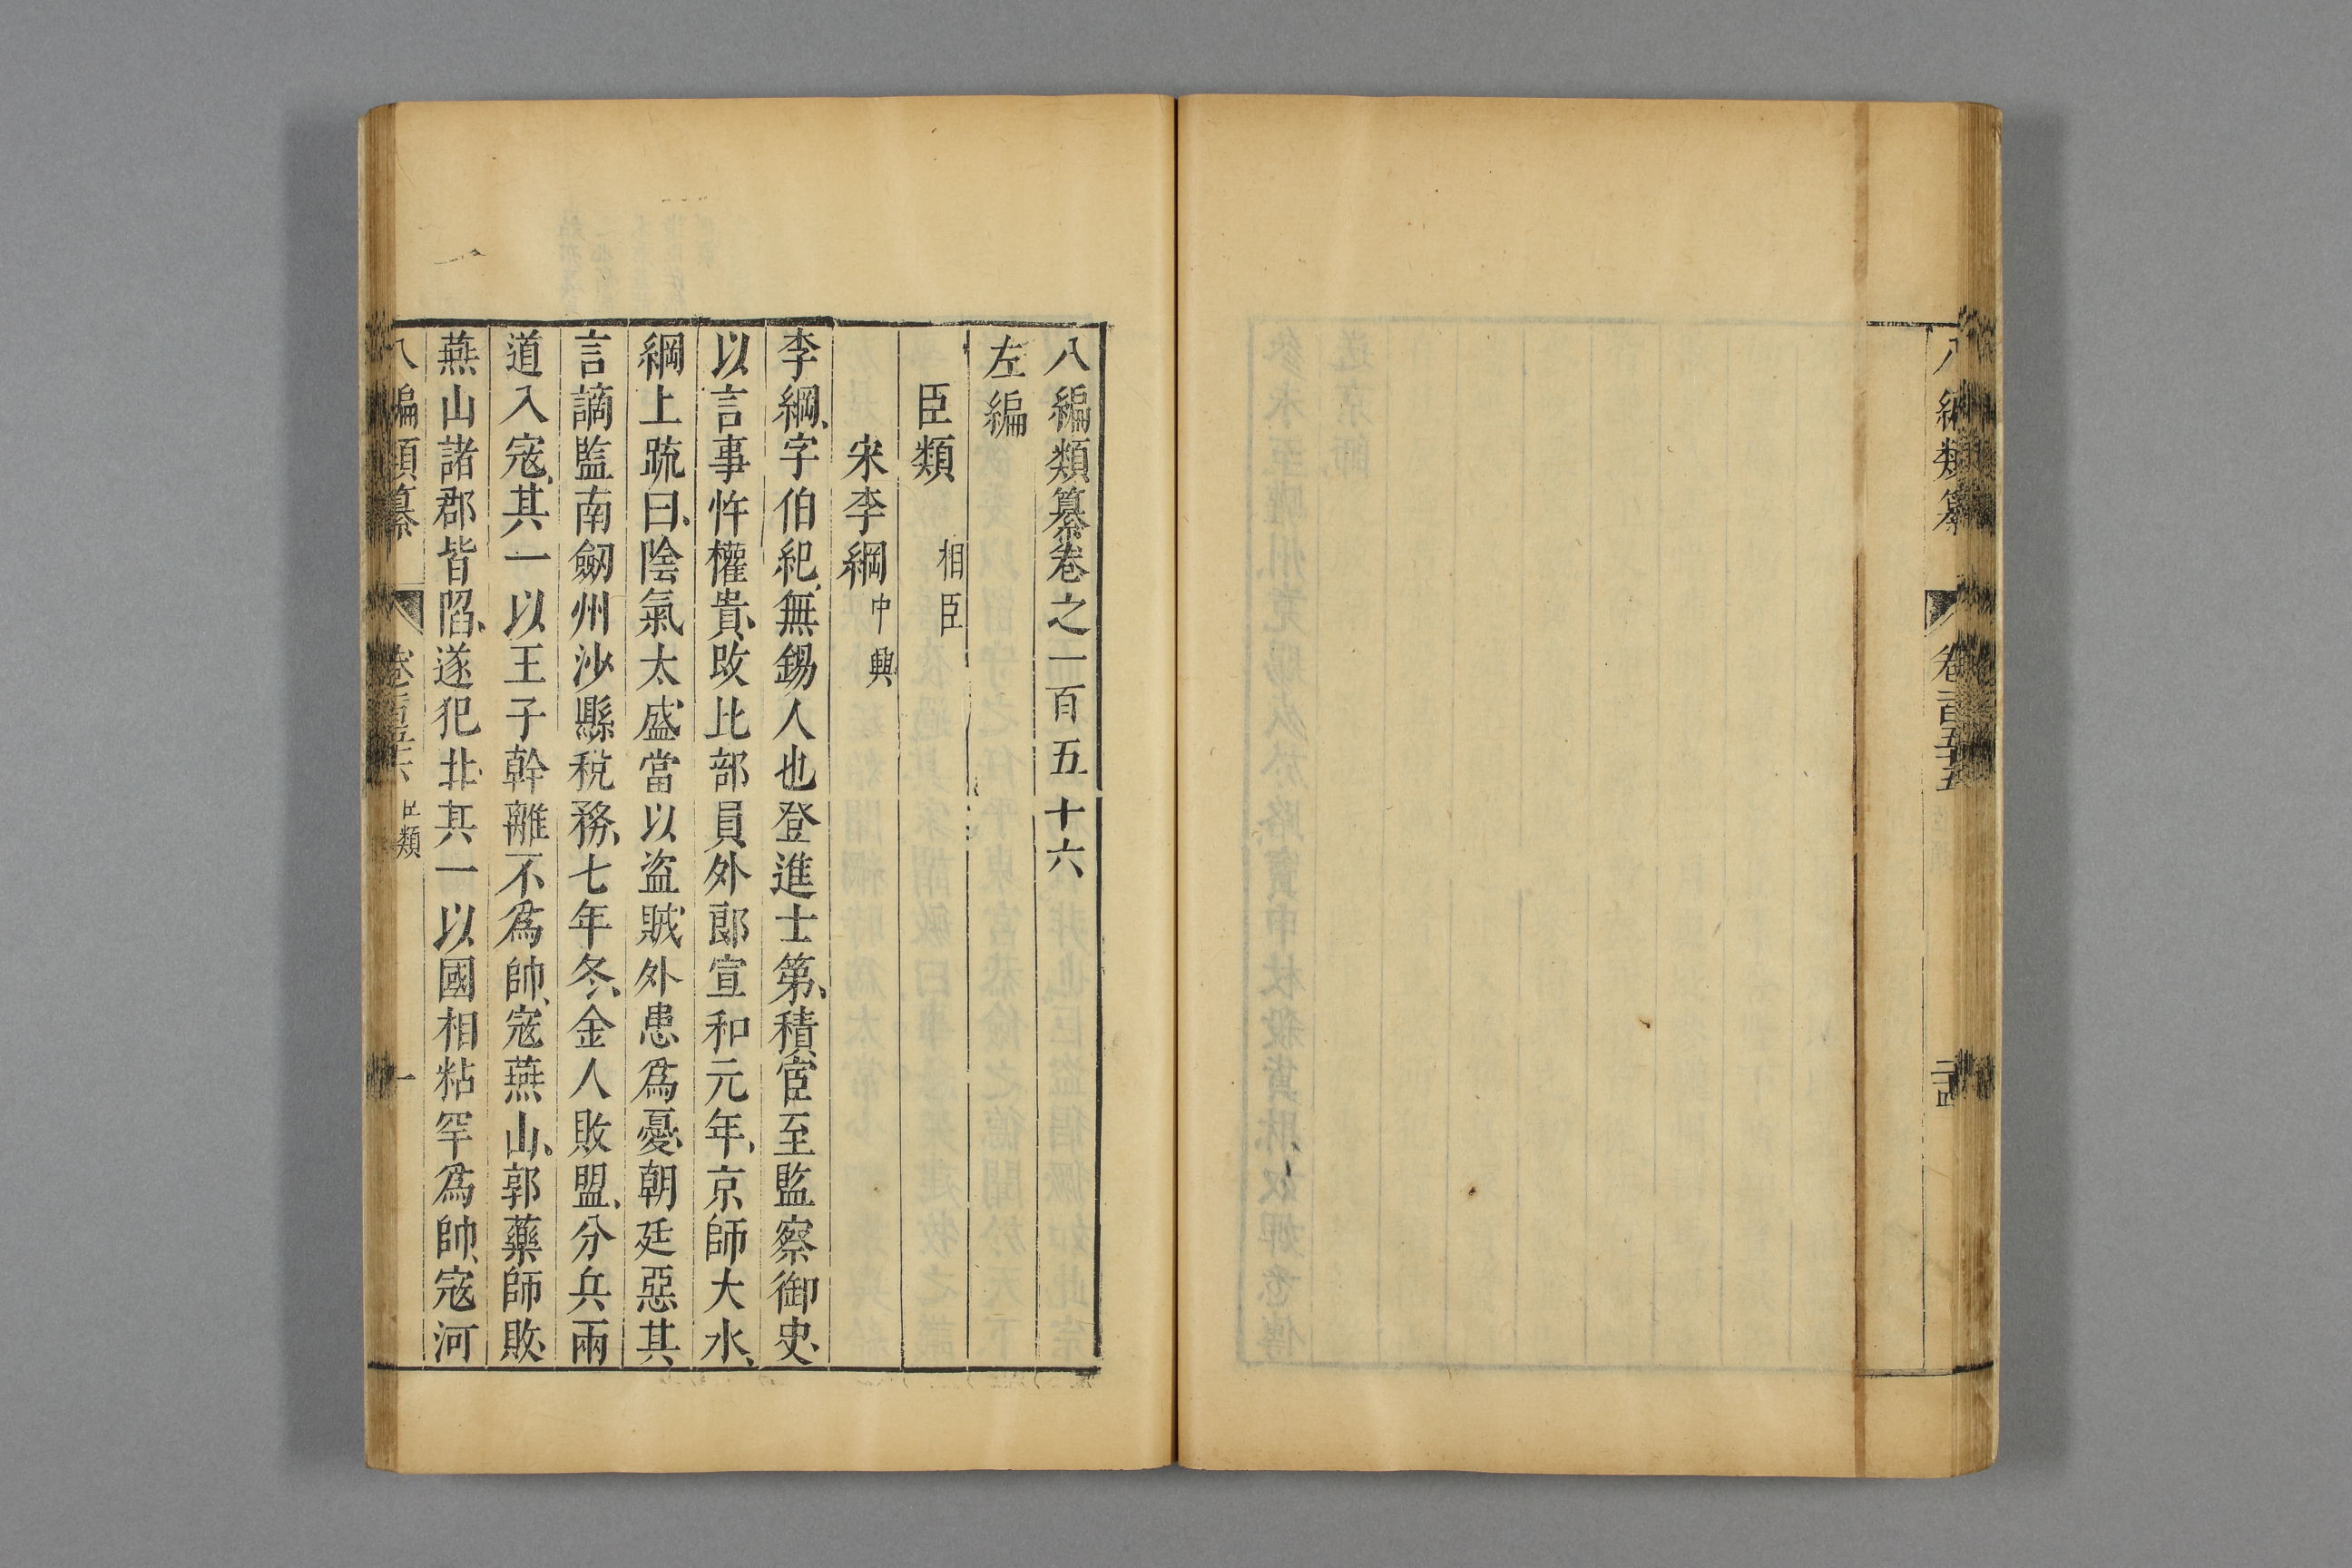 八編類纂卷之一百五十六
左編
臣類 相臣
宋李綱 中興
李綱、字伯紀、無錫人也登進士第、積宦至監察御史、
以言事忤權貴、改比部員外郎宣和元年、京師大水、
綱上疏曰、陰氣太盛、當以盜賊外患為憂、朝廷惡其、
言謫監南劒州沙縣稅務、七年冬、金人敗盟、分兵兩
道入寇、其一以王子幹離不為帥、寇燕山、郭藥師敗、
燕山諸郡皆陷、遂犯北、其一以國相粘罕為帥、寇河
八編類纂 卷一百五十六 臣類 一
八編類纂 卷一百五十五 二十四